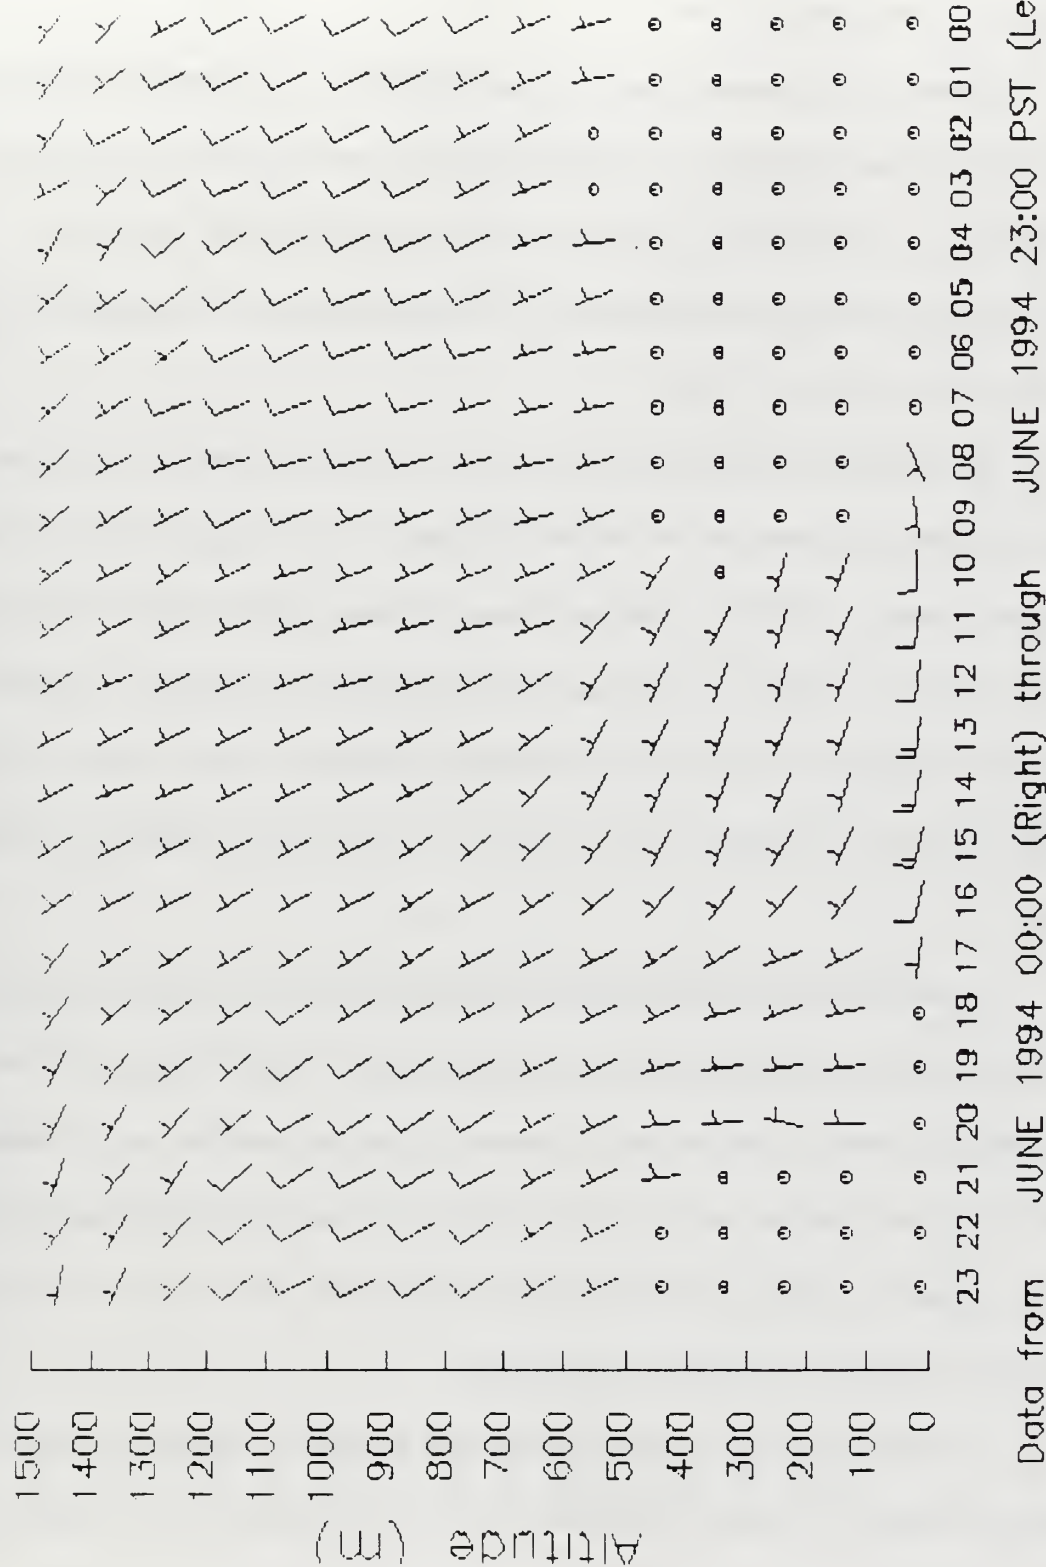 1500
1400
1300
1200
1100
1000
900
800
700
600
500
400
300
200
100
0
Altitude (m)
23 22 21 20 19 18 17 16 15 14 13 12 11 10 09 08 07 06 05 04 03 02 01 00
Data from JUNE 1994 00:00 (Right) through JUNE 1994 23:00 PST (Le